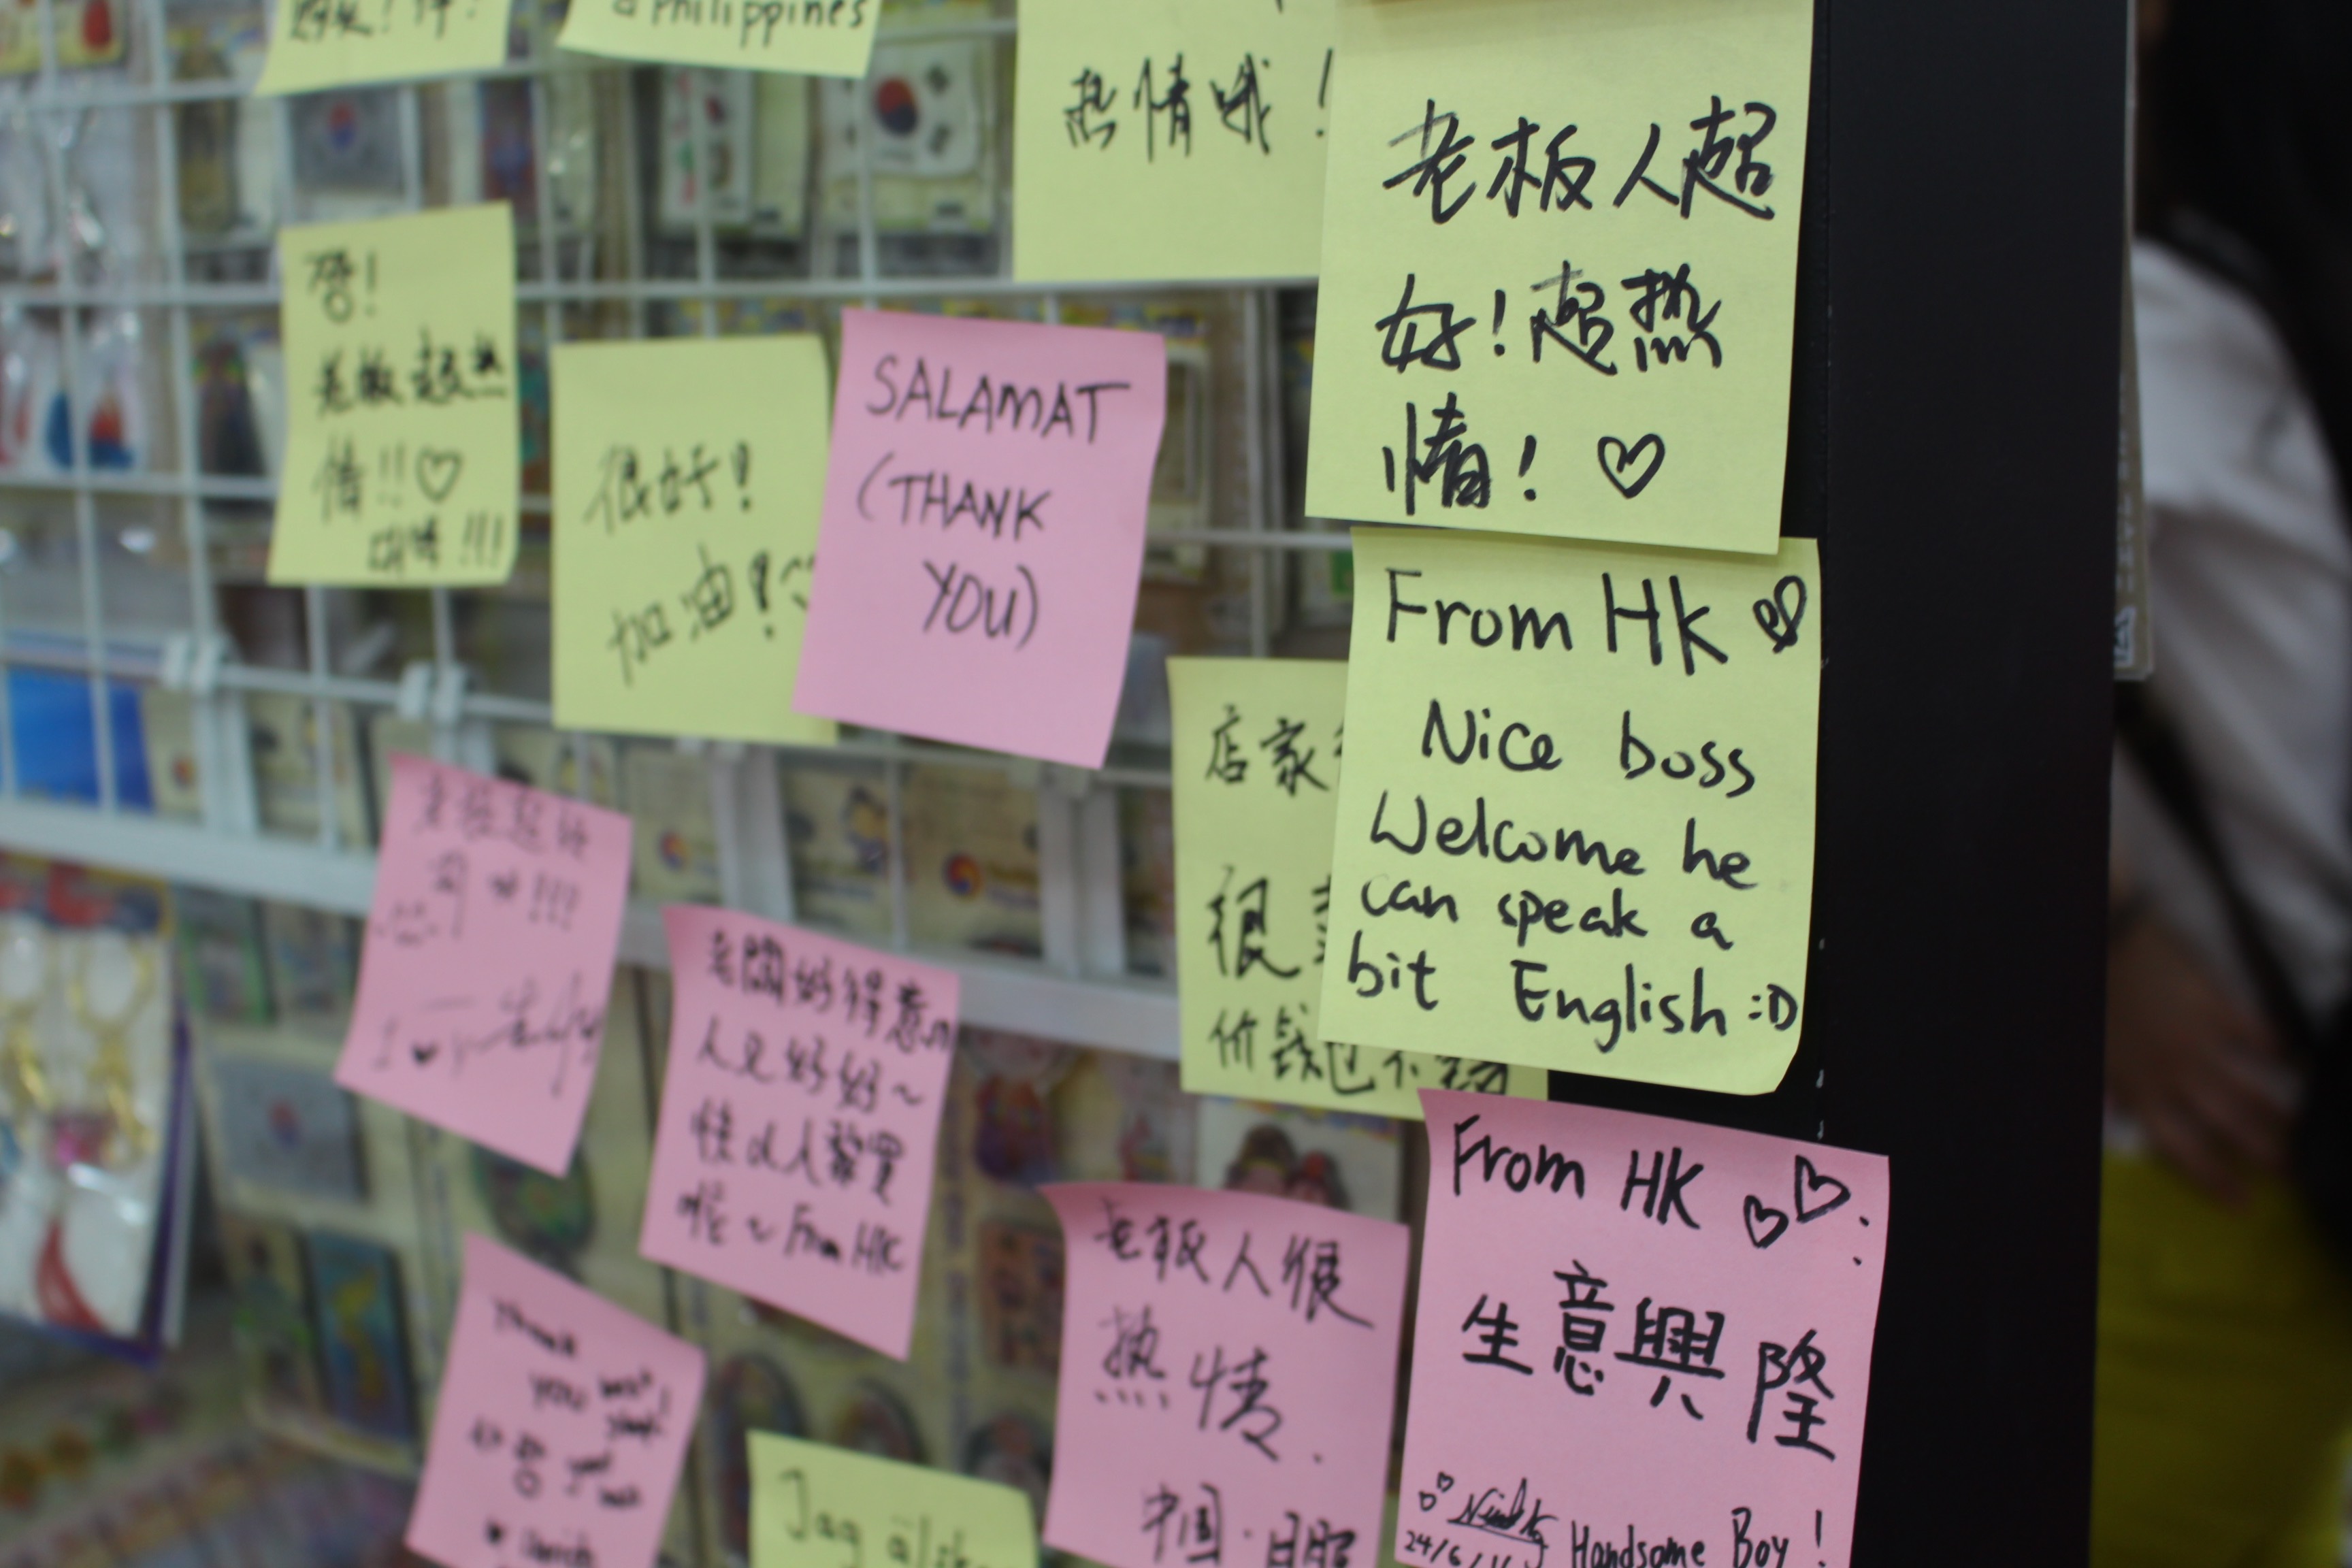 Philippines
热情哦!
老板人超
好!超热
情!♡
짱!
老板超热
情!!♡
대박!!!
很好!
加油!
SALAMAT
(THANK
YOU)
From HK
Nice boss
Welcome he
can speak a
bit English :D
店家
很
价钱也不错
老闆好得意
人又好好~
快d人黎買
啦~From HK
老板人很
热情.
中国·
From HK ♡♡
生意興隆
24/6/
Handsome Boy!
Thank
you
사랑
Jag älskar